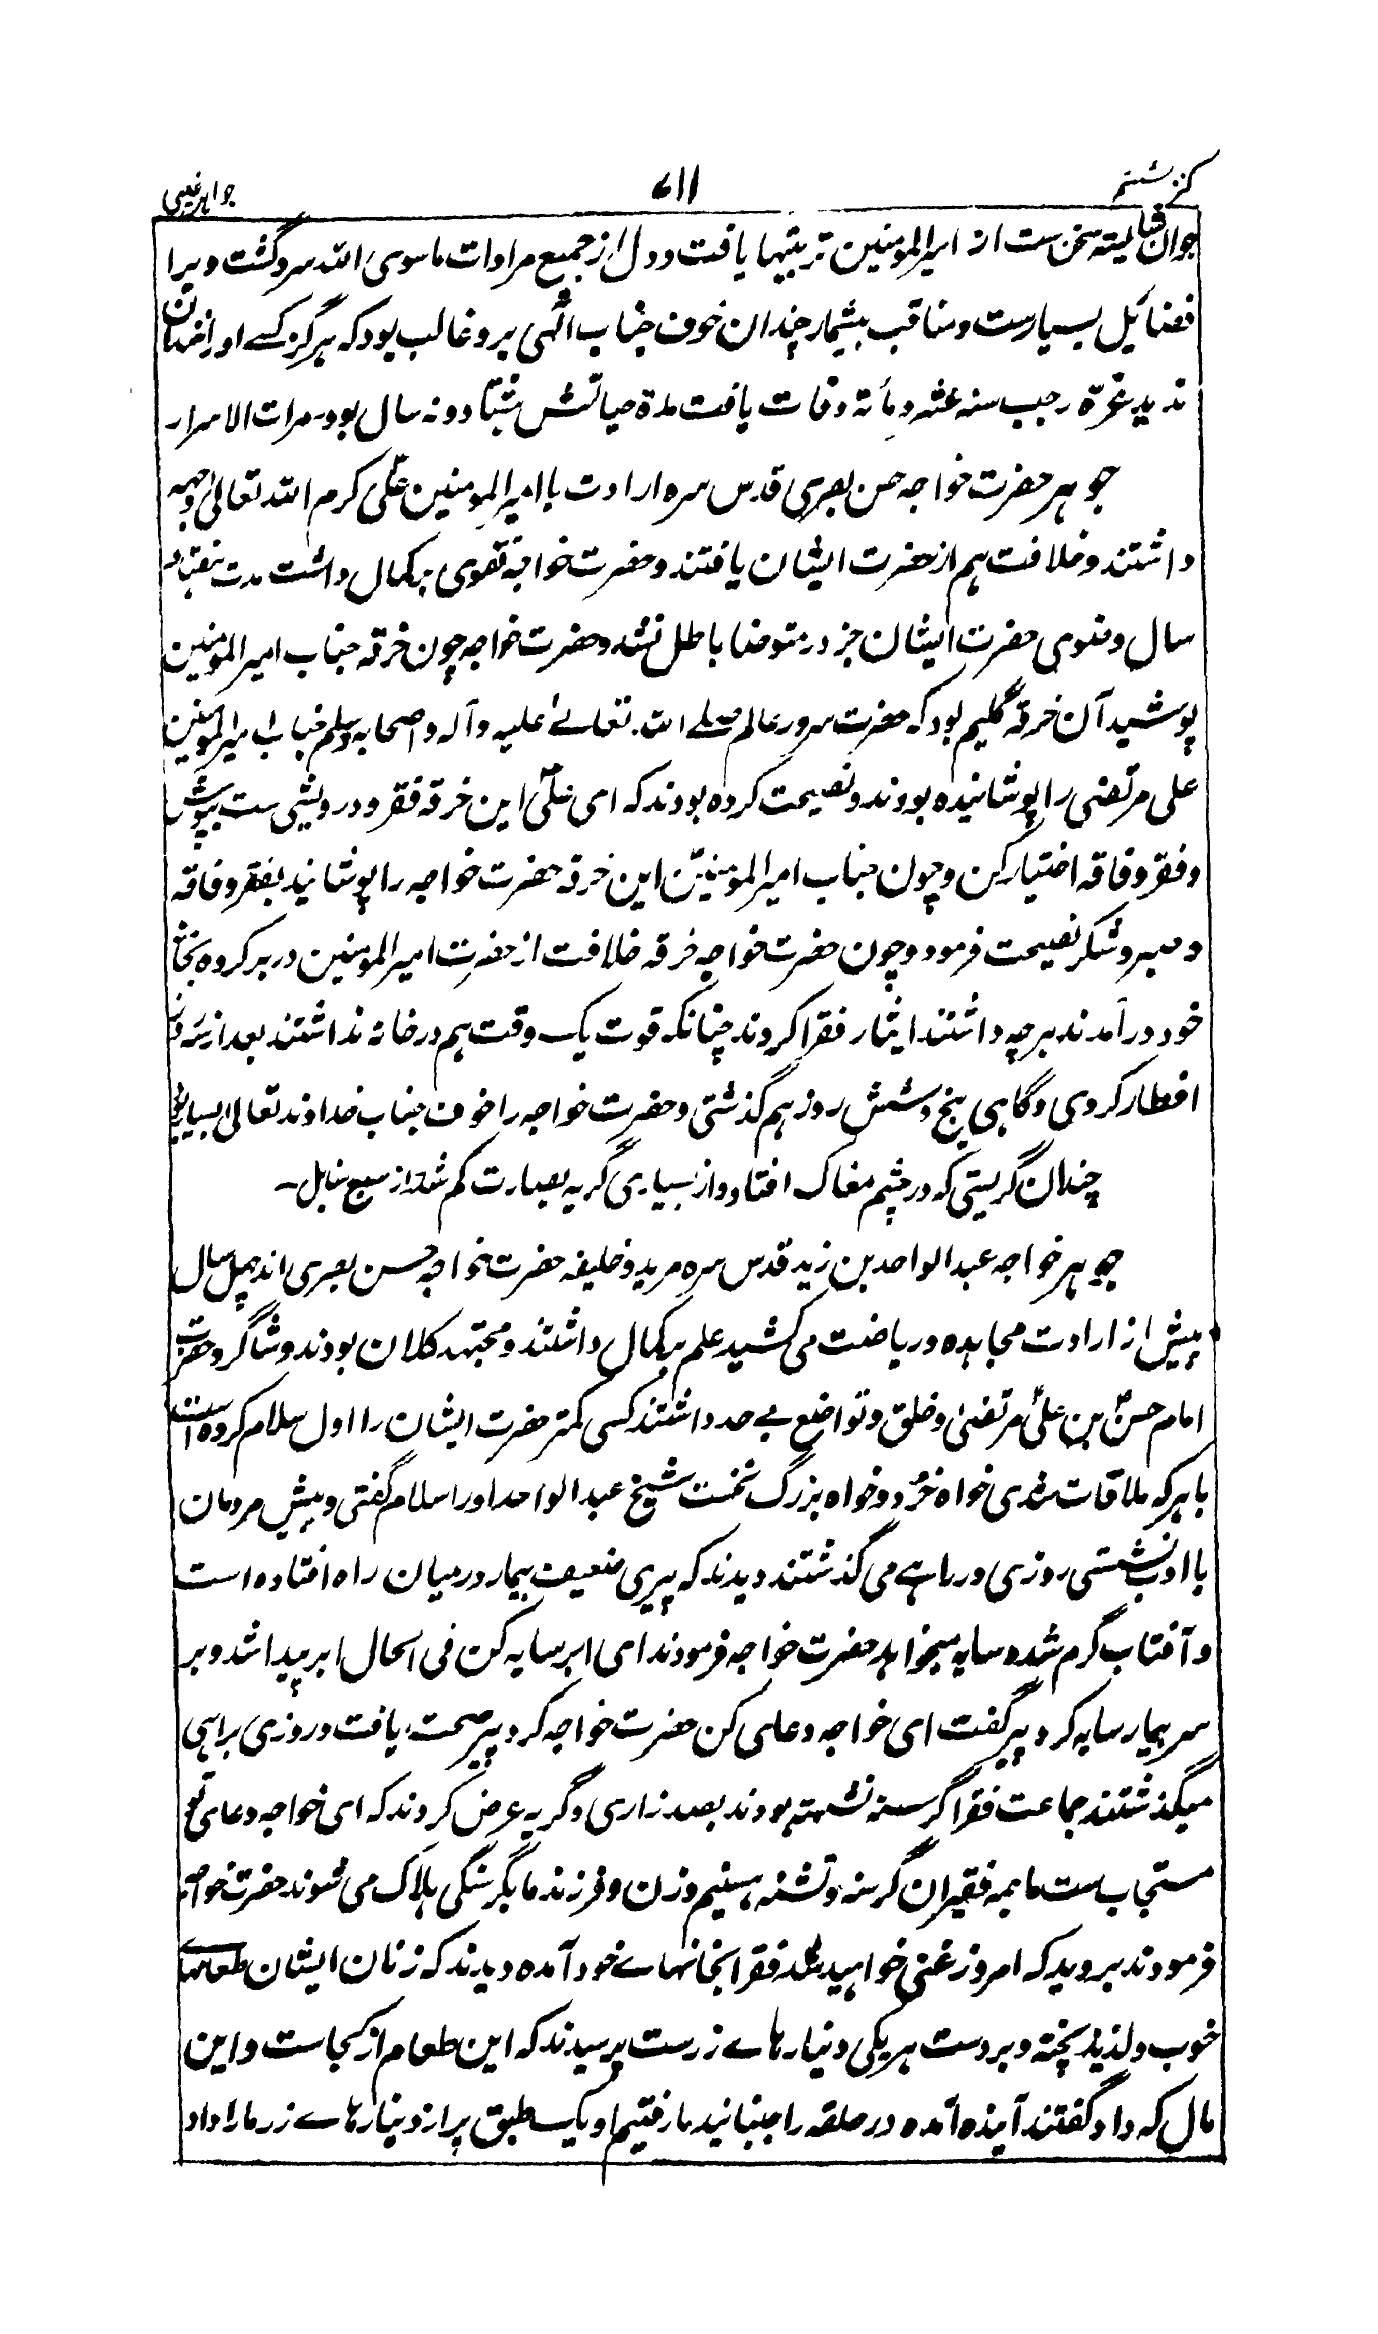 کنز ششم ۷۱۱ جواهر غیبی
جوان شایسته سخن ست از امیرالمومنین تربیتها یافت و دل از جمیع مرادات ماسوی الله سرد گشت و ویرا
فضائل بسیارست و مناقب بیشمار چندان خوف جناب الٰهی برو غالب بود که هرگز کسے او را خندان
ندید غرّه رجب سنه عشر و مائة وفات یافت مدة حیاتش هشتاد و نه سال بود ـ مرات الاسرار
جوهر حضرت خواجه حسن بصری قدس سره ارادت با امیرالمومنین علیؓ کرم الله تعالیٰ وجهه
داشتند و خلافت هم از حضرت ایشان یافتند و حضرت خواجه تقوی بکمال داشت مدت هفتاد
سال وضوی حضرت ایشان جز در متوضا باطل نشد و حضرت خواجه چون خرقه جناب امیرالمومنین
پوشید آن خرقه گلیم بود که حضرت سرور عالم صلے الله تعالےٰ علیه وآله و اصحابه وسلم جناب امیرالمومنین
علی مرتضی را پوشانیده بودند و نصیحت کرده بودند که ای علیؓ این خرقه فقر و درویشی ست بپوش
و فقر و فاقه اختیار کن و چون جناب امیرالمومنینؓ این خرقه حضرت خواجه را پوشانید بفقر و فاقه
و صبر و شکر نصیحت فرمود و چون حضرت خواجه خرقه خلافت از حضرت امیرالمومنین در بر کرده بخانه
خود درآمدند هرچه داشتند ایثار فقرا کردند چنانکه قوت یک وقت هم در خانه نداشتند بعد از سه روز
افطار کردی و گاهی پنج و شش روز هم گذشتی و حضرت خواجه را خوف جناب خداوند تعالیٰ بسیار بود
چندان گریستی که در چشم مغاک افتاد و از بسیاری گریه بصارت کم شد از سبع سنابل ـ
جوهر خواجه عبدالواحد بن زید قدس سره مرید و خلیفه حضرت خواجه حسن بصری اند چهل سال
پیش از ارادت مجاهده و ریاضت می کشید علم بکمال داشتند و مجتهد کلان بودند و شاگرد حضرت
امام حسنؓ بن علیؓ مرتضیٰ و خلق و تواضع بے حد داشتند کسی کمتر حضرت ایشان را اول سلام کرده است
با هرکه ملاقات شدی خواه خرُد و خواه بزرگ نخست شیخ عبدالواحد او را سلام گفتی و پیش مردمان
با ادب نشستی روزی در راهے می گذشتند دیدند که پیری ضعیف بیمار درمیان راه افتاده است
و آفتاب گرم شده سایه میخواهد حضرت خواجه فرمودند ای ابر سایه کن فی الحال ابر پیدا شد و بر
سر بیمار سایه کرد پیر گفت ای خواجه دعای کن حضرت خواجه کرد پیر صحت یافت و روزی براهی
میگذشتند جماعت فقرا گرسنه نشسته بودند بصد زاری و گریه عرض کردند که ای خواجه دعای تو
مستجاب ست ما همه فقیران گرسنه و تشنه هستیم و زن و فرزند ما بگرسنگی هلاک می شوند حضرت خواجه
فرمودند بروید که امروز غنی خواهید شد فقرا بخانهاے خود آمده دیدند که زنان ایشان طعامهاے
خوب و لذیذ پخته و بردست هریکی دینارهاے زرست پرسیدند که این طعام از کجاست و این
مال که داد گفتند آینده آمده در حلقه را جنبانید ما رفتیم او یک طبق پر از دینارهاے زر مارا داد